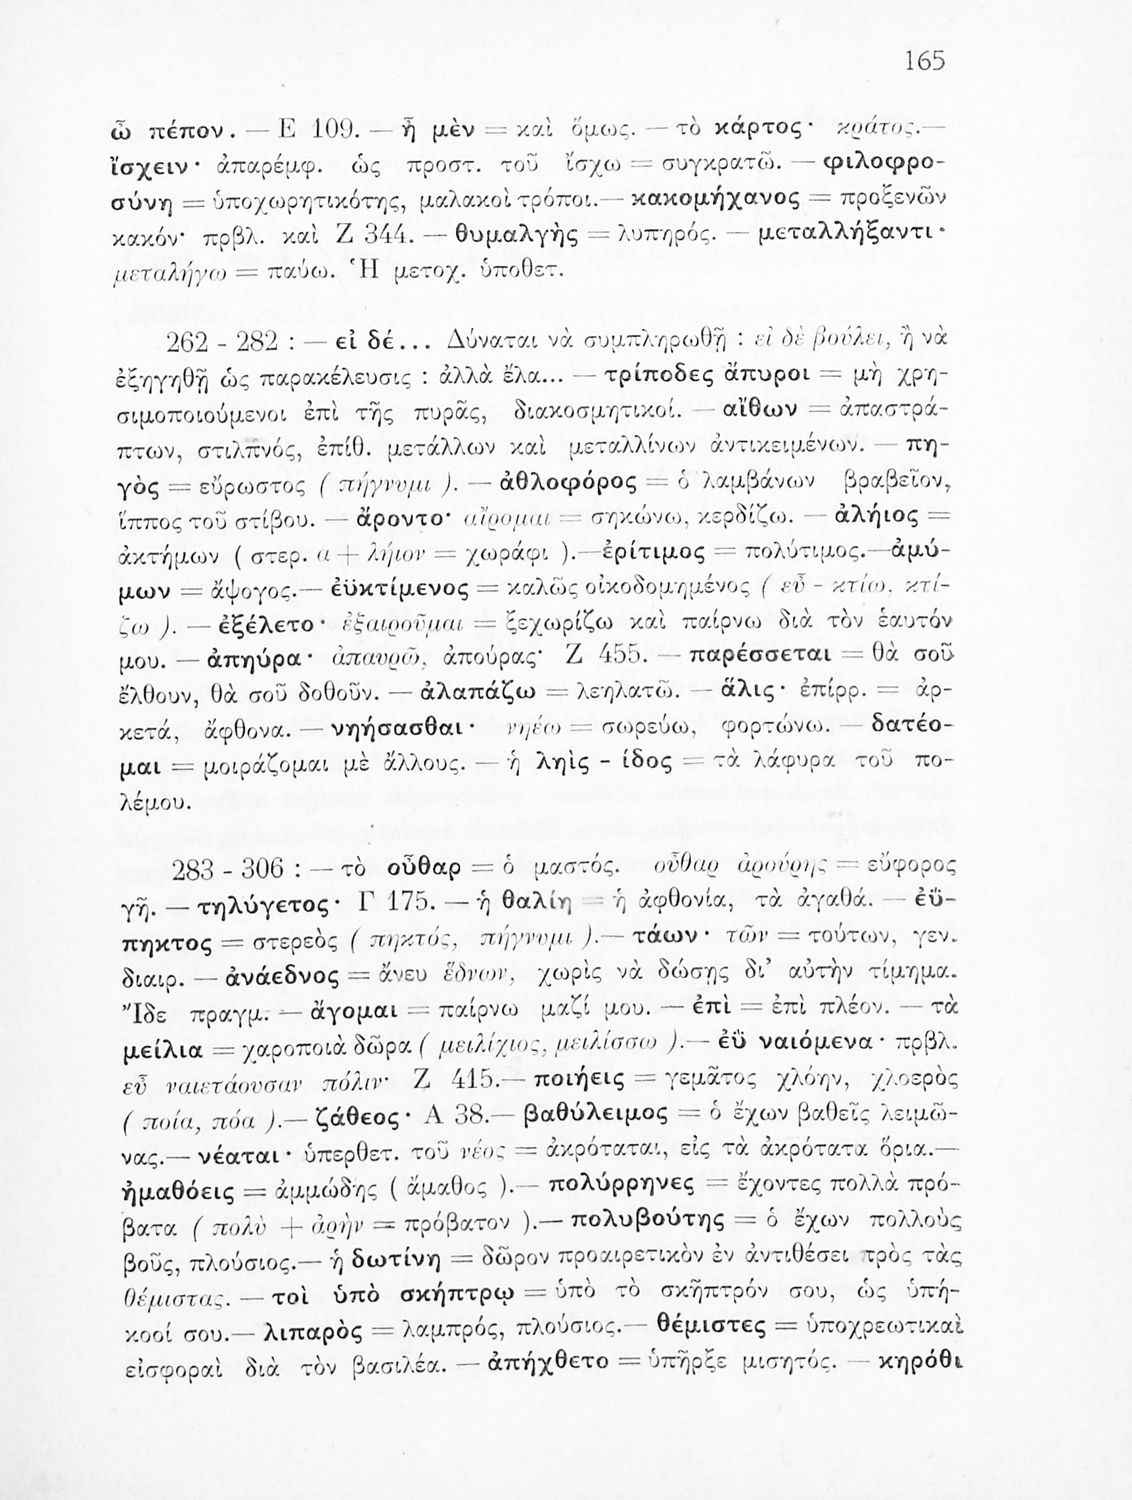 165
ὦ πέπον. — Ε 109. — ἦ μὲν = καὶ ὅμως. — τὸ κάρτος· κράτος.—
ἴσχειν· ἀπαρέμφ. ὡς προστ. τοῦ ἴσχω = συγκρατῶ. — φιλοφρο-
σύνη = ὑποχωρητικότης, μαλακοὶ τρόποι.— κακομήχανος = προξενῶν
κακόν· πρβλ. καὶ Ζ 344. — θυμαλγὴς = λυπηρός. — μεταλλήξαντι·
μεταλήγω = παύω. Ἡ μετοχ. ὑποθετ.
262 - 282 : — εἰ δέ... Δύναται νὰ συμπληρωθῇ : εἰ δὲ βούλει, ἢ νὰ
ἐξηγηθῇ ὡς παρακέλευσις : ἀλλὰ ἔλα... — τρίποδες ἄπυροι = μὴ χρη-
σιμοποιούμενοι ἐπὶ τῆς πυρᾶς, διακοσμητικοί. — αἴθων = ἀπαστρά-
πτων, στιλπνός, ἐπίθ. μετάλλων καὶ μεταλλίνων ἀντικειμένων. — πη-
γὸς = εὔρωστος ( πήγνυμι ). — ἀθλοφόρος = ὁ λαμβάνων βραβεῖον,
ἵππος τοῦ στίβου. — ἄροντο· αἴρομαι = σηκώνω, κερδίζω. — ἀλήιος =
ἀκτήμων ( στερ. α + λήιον = χωράφι ).—ἐρίτιμος = πολύτιμος.—ἀμύ-
μων = ἄψογος.— ἐϋκτίμενος = καλῶς οἰκοδομημένος ( εὖ - κτίω, κτί-
ζω ). — ἐξέλετο· ἐξαιροῦμαι = ξεχωρίζω καὶ παίρνω διὰ τὸν ἑαυτόν
μου. — ἀπηύρα· ἀπαυρῶ, ἀπούρας· Ζ 455. — παρέσσεται = θὰ σοῦ
ἔλθουν, θὰ σοῦ δοθοῦν. — ἀλαπάζω = λεηλατῶ. — ἅλις· ἐπίρρ. = ἀρ-
κετά, ἄφθονα. — νηήσασθαι· νηέω = σωρεύω, φορτώνω. — δατέο-
μαι = μοιράζομαι μὲ ἄλλους. — ἡ ληὶς - ίδος = τὰ λάφυρα τοῦ πο-
λέμου.
283 - 306 : — τὸ οὖθαρ = ὁ μαστός. οὖθαρ ἀρούρης = εὔφορος
γῆ. — τηλύγετος· Γ 175. — ἡ θαλίη = ἡ ἀφθονία, τὰ ἀγαθά. — ἐΰ-
πηκτος = στερεὸς ( πηκτός, πήγνυμι ).— τάων· τῶν = τούτων, γεν.
διαιρ. — ἀνάεδνος = ἄνευ ἕδνων, χωρὶς νὰ δώσῃς δι’ αὐτὴν τίμημα.
Ἴδε πραγμ. — ἄγομαι = παίρνω μαζί μου. — ἐπὶ = ἐπὶ πλέον. — τὰ
μείλια = χαροποιὰ δῶρα ( μειλίχιος, μειλίσσω ).— ἐῢ ναιόμενα· πρβλ.
εὖ ναιετάουσαν πόλιν· Ζ 415.— ποιήεις = γεμᾶτος χλόην, χλοερὸς
( ποία, πόα ).— ζάθεος· Α 38.— βαθύλειμος = ὁ ἔχων βαθεῖς λειμῶ-
νας.— νέαται· ὑπερθετ. τοῦ νέος = ἀκρόταται, εἰς τὰ ἀκρότατα ὅρια.—
ἠμαθόεις = ἀμμώδης ( ἄμαθος ).— πολύρρηνες = ἔχοντες πολλὰ πρό-
βατα ( πολὺ + ἀρὴν = πρόβατον ).— πολυβούτης = ὁ ἔχων πολλοὺς
βοῦς, πλούσιος.— ἡ δωτίνη = δῶρον προαιρετικὸν ἐν ἀντιθέσει πρὸς τὰς
θέμιστας. — τοὶ ὑπὸ σκήπτρῳ = ὑπὸ τὸ σκῆπτρόν σου, ὡς ὑπή-
κοοί σου.— λιπαρὸς = λαμπρός, πλούσιος.— θέμιστες = ὑποχρεωτικαὶ
εἰσφοραὶ διὰ τὸν βασιλέα. — ἀπήχθετο = ὑπῆρξε μισητός. — κηρόθι